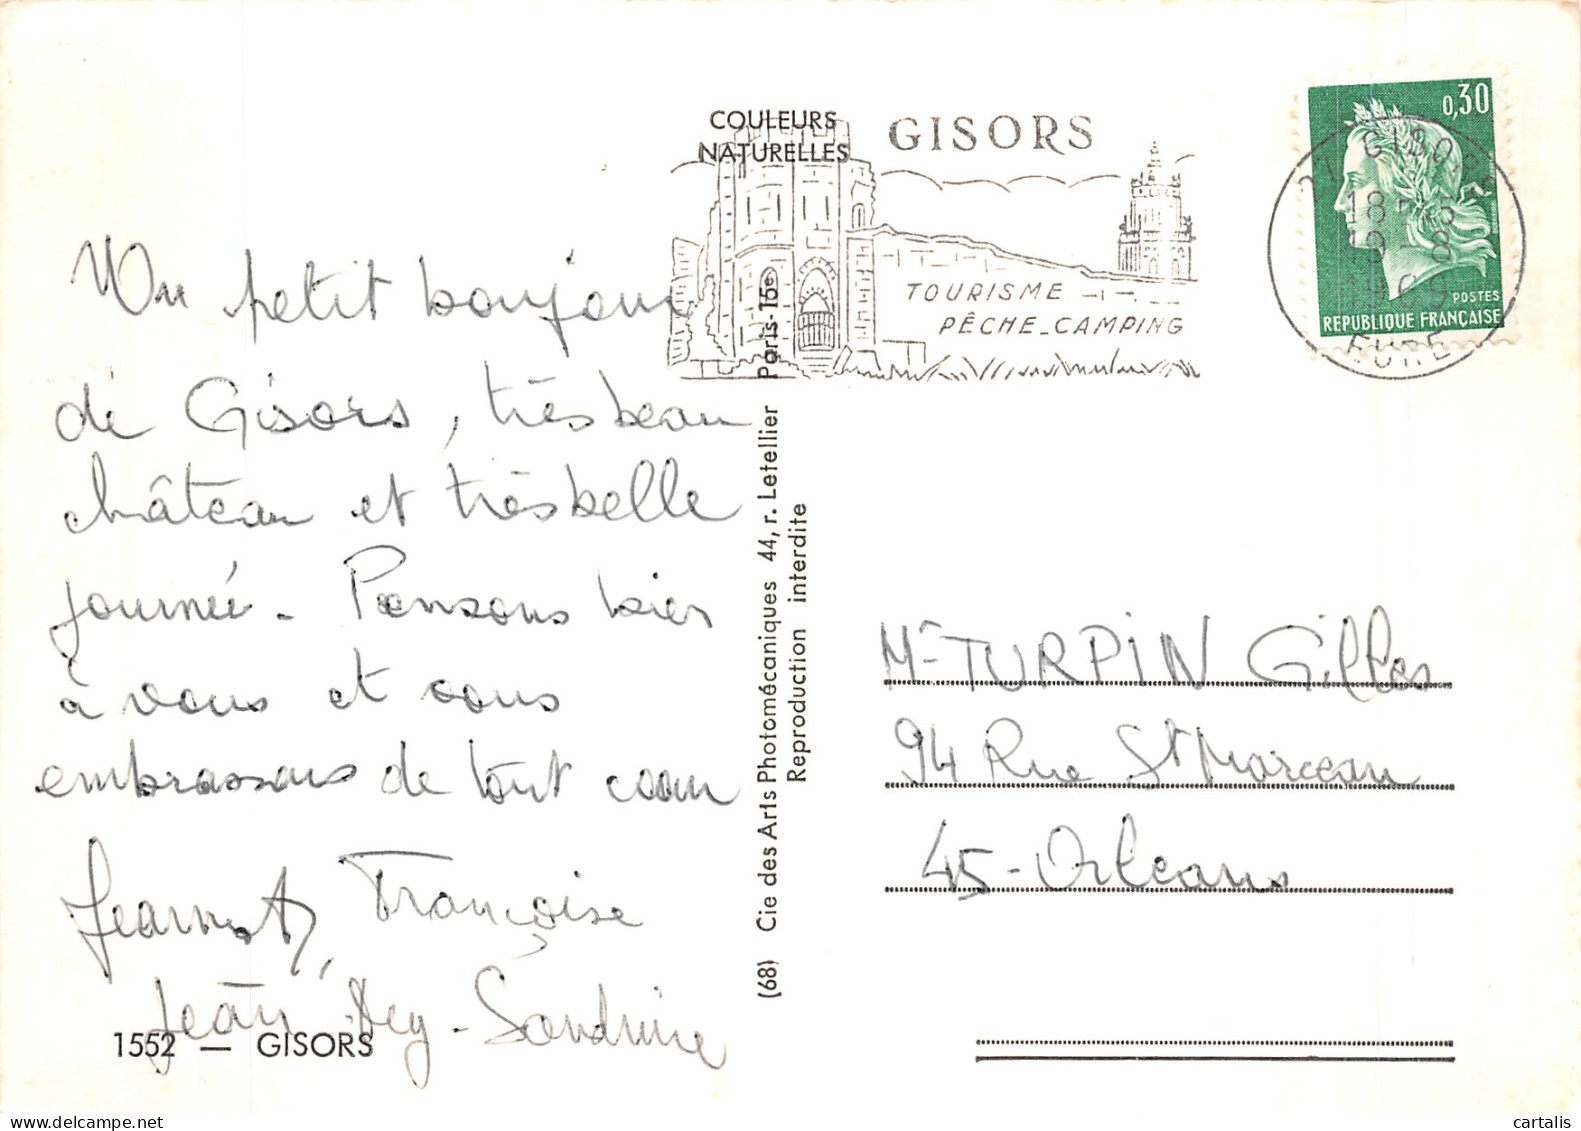 COULEURS
NATURELLES
GISORS
TOURISME
PÊCHE_CAMPING
0,30
POSTES
REPUBLIQUE FRANÇAISE
27 GISORS
18H15
19-8
1969
EURE
Un petit bonjour
de Gisors, très beau
château et très belle
journée - Pensons bien
à vous et vous
embrassons de tout coeur
Françoise
Jean - Sandrine
1552 — GISORS
(68) Cie des Arts Photomécaniques 44, r. Letellier Paris-15e
Reproduction interdite
Mr TURPIN Gilles
94 Rue St Marceau
45-Orléans
cartalis